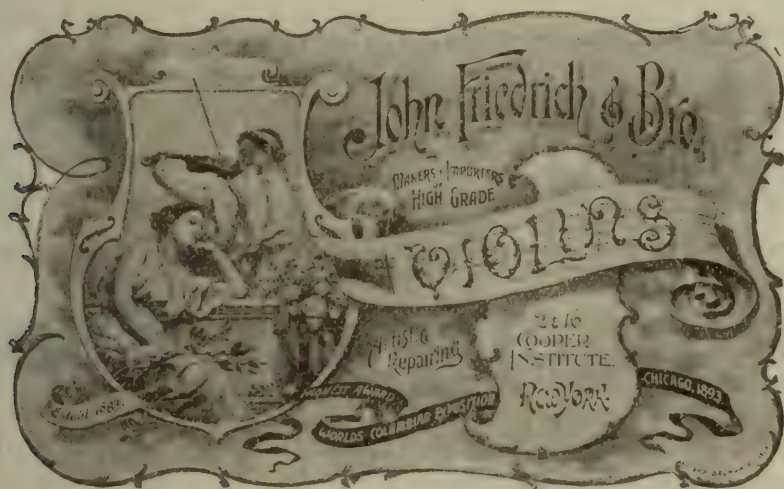 John Friedrich & Bro.
MAKERS & IMPORTERS
OF
HIGH GRADE
VIOLINS
Artistic
Repairing
2 & 16
COOPER
INSTITUTE.
New York.
1883.
HIGHEST AWARD
WORLDS COLUMBIAN EXPOSITION
CHICAGO, 1893